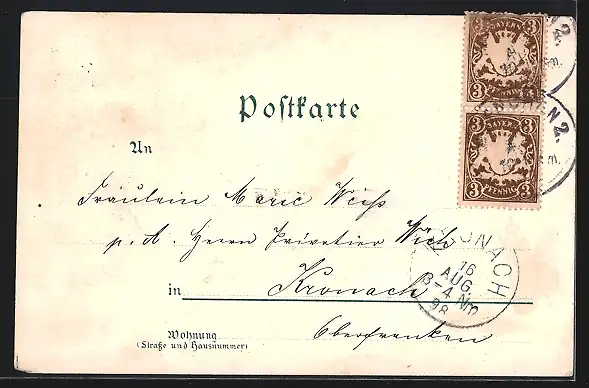 BAYERN
3 3
PFENNIG
BAYERN
3 3
PFENNIG
N 2.
N 2.
Postkarte
An
Fräulein Marie Weiß
p. A. Herrn Privatier Weiß
in Kronach
Oberfranken
KRONACH
16
AUG.
3-4 Nm
98
Wohnung
(Straße und Hausnummer)